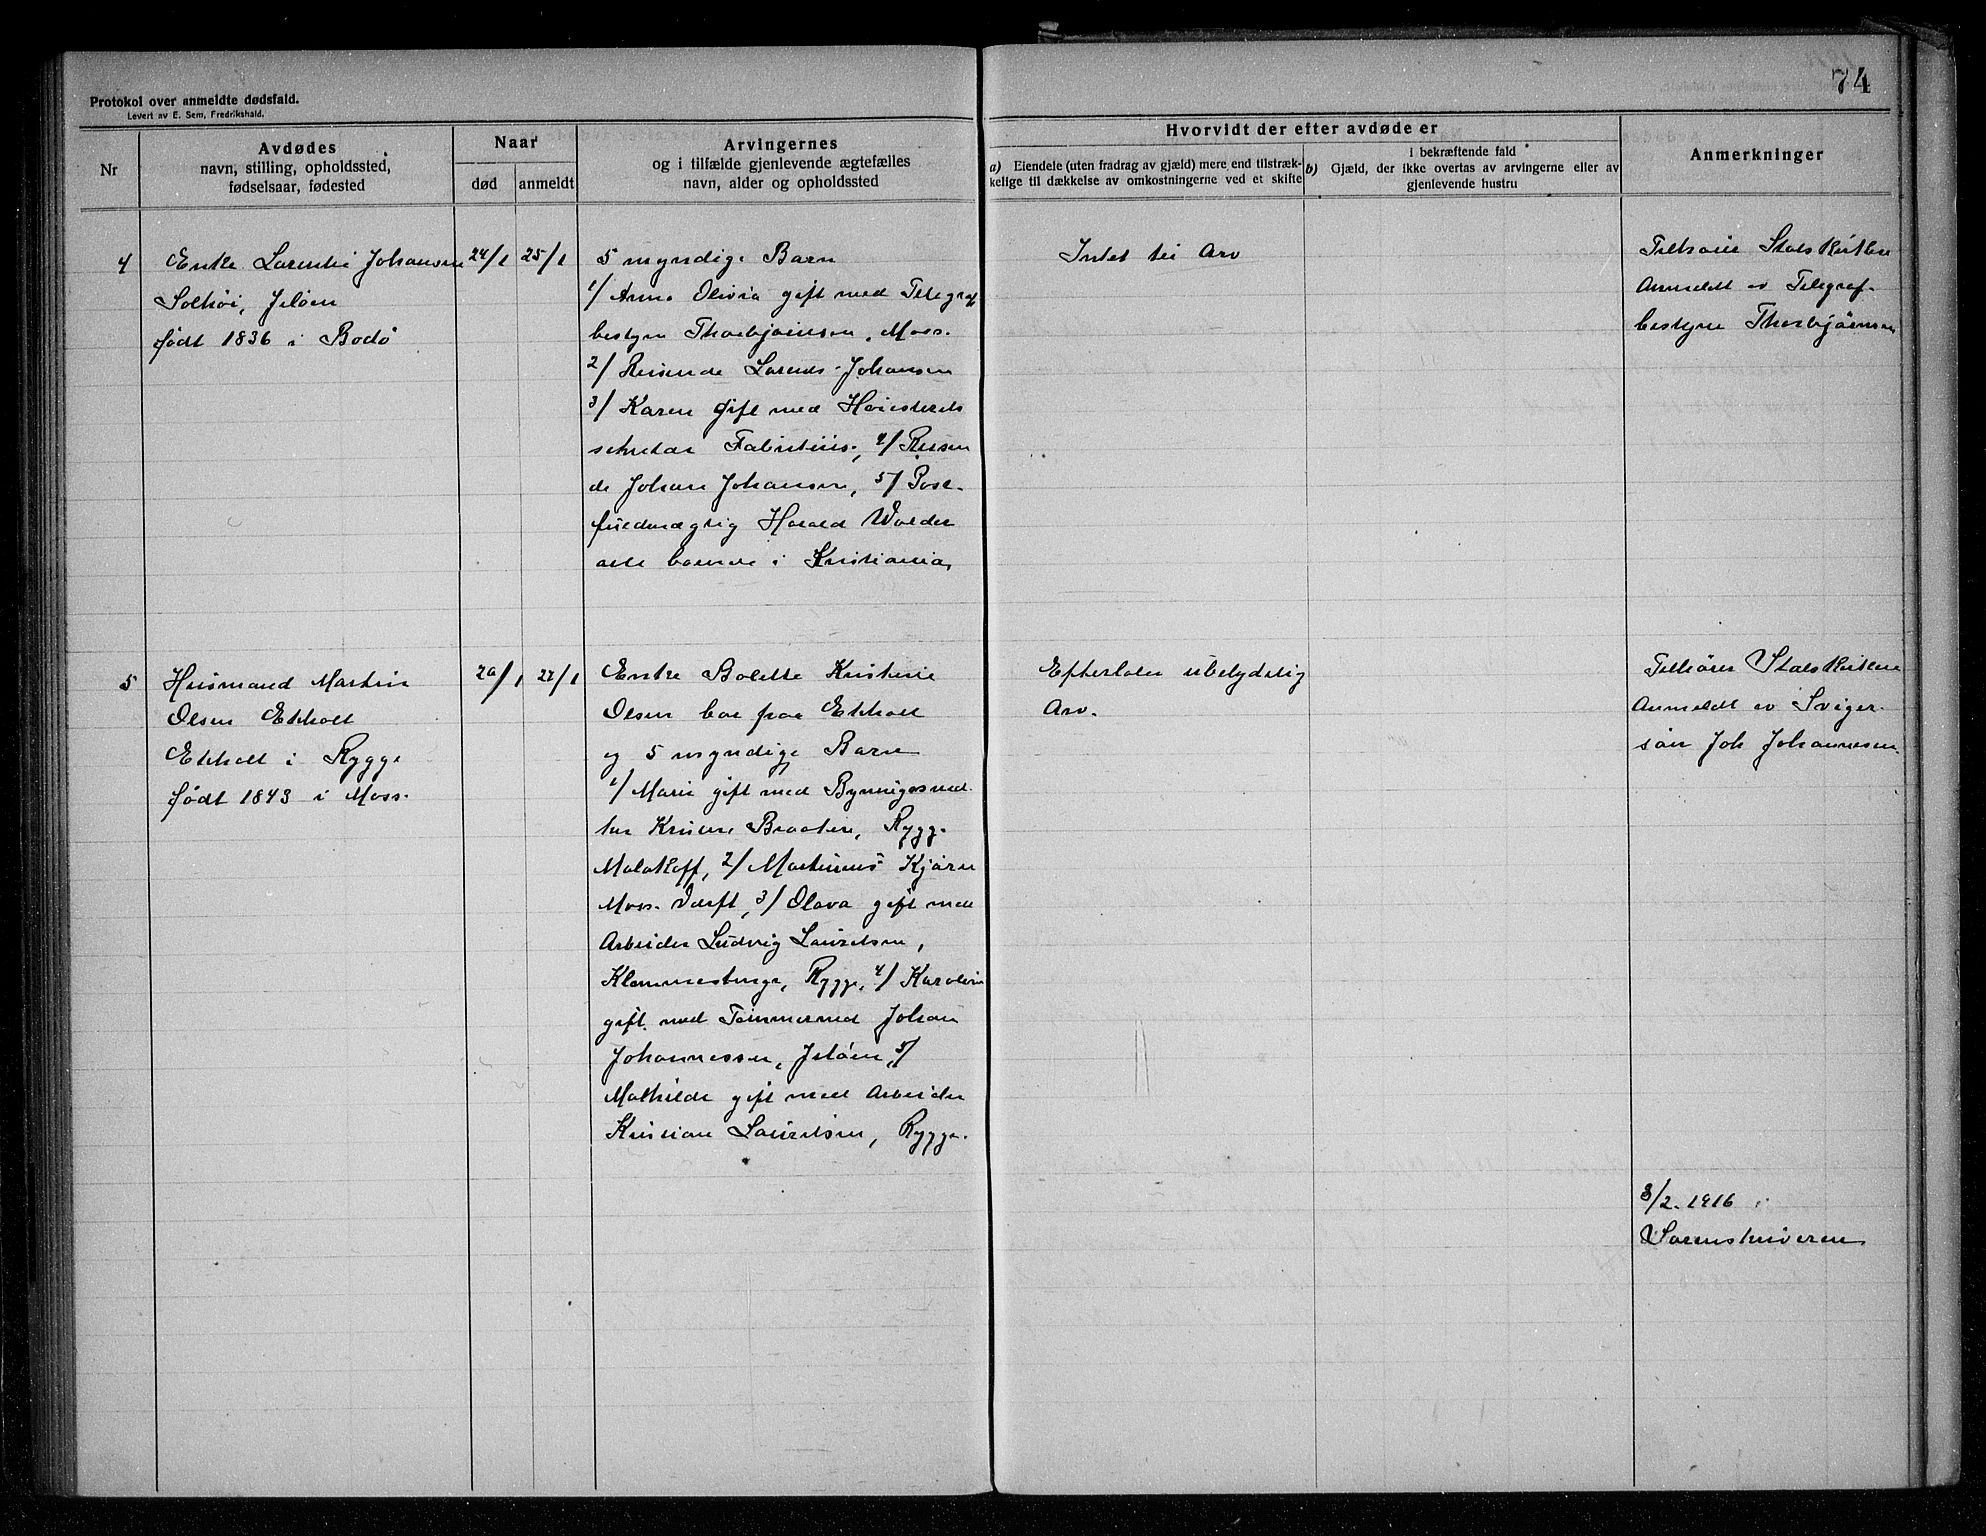 Protokol over anmeldte dødsfald.
Levert av E. Sem, Fredrikshald.
74
Nr
Avdødes
navn, stilling, opholdssted,
fødselsaar, fødested
Naar
død
anmeldt
Arvingernes
og i tilfælde gjenlevende ægtefælles
navn, alder og opholdssted
Hvorvidt der efter avdøde er
a) Eiendele (uten fradrag av gjæld) mere end tilstræk-
kelige til dækkelse av omkostningerne ved et skifte
I bekræftende fald
b) Gjæld, der ikke overtas av arvingerne eller av
gjenlevende hustru
Anmerkninger
4
Enke Larentse Johansen
Solhöi, Jeløen
født 1836 i Bodø
24/1
25/1
5 myndige Barn
1/ Anna Olivia gift med Telegraf
bestyrer Thorbjørnsen, Moss.
2/ Reisende Lorends Johansen
3/ Karen gift med Høiesterets
sekretær Fabritius, 4/ Reisen
de Johan Johansen, 5/ Post-
fuldmægtig Harald Wolder
alle boende i Kristiania,
Intet til Arv
Tilhører Statskirken
Anmeldt av Telegraf-
bestyrer Thorbjørnsen
5
Husmand Martin
Olsen Ekholt
Ekholt i Rygge
født 1843 i Moss.
20/1
22/1
Enke Bolette Kristine
Olsen bor paa Ekholt
og 5 myndige Barn
1/ Marie gift med Bygningssned
ker Braaten, Rygge
Malakoff, 2/ Martinius Kjærn
Moss Værft, 3/ Olava gift med
Arbeider Ludvig Lauritsen,
Klommestenge, Rygge, 4/ Karoline
gift med Tømmermed Johan
Johannessen, Jeløen, 5/
Mathilde gift med Arbeider
Kristian Lauritsen, Rygge.
Efterlater ubetydelig
Arv.
Tilhører Statskirken
Anmeldt av Sviger-
søn Joh Johannesen.
3/2. 1916
Sorenskriveren